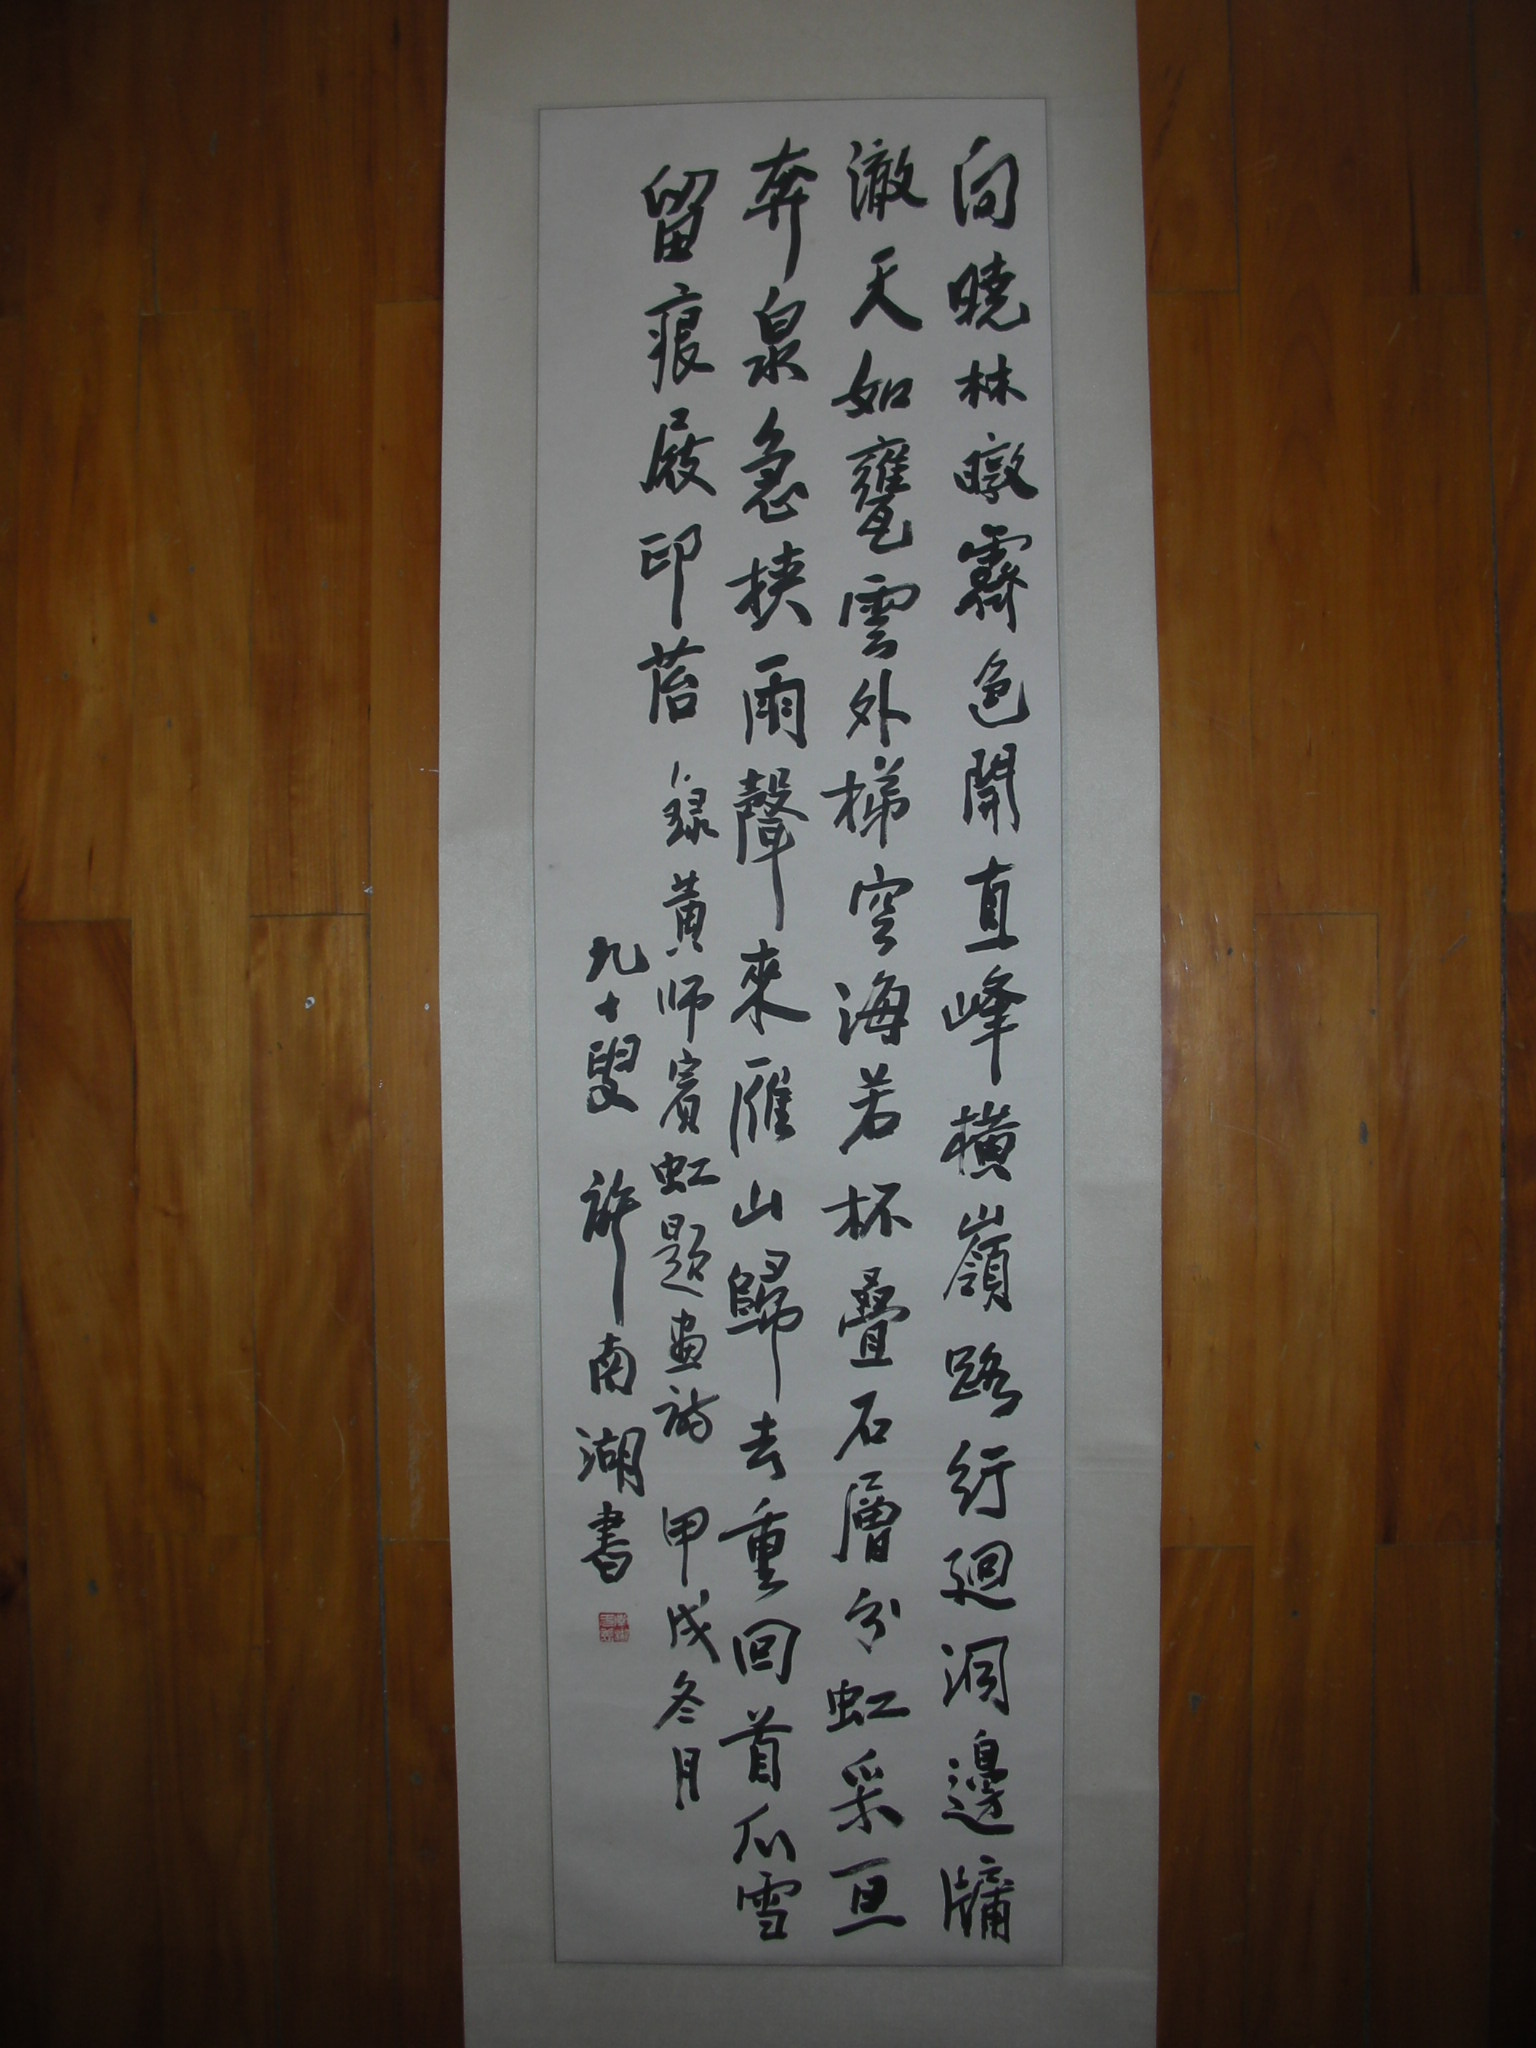 向曉林暾霽色開直峰橫嶺路紆迴洞邊牖
澈天如甕雲外梯空海若杯疊石層分虹采亘
奔泉急挾雨聲來雁山歸去重回首爪雪
留痕屐印苔 錄黄师賓虹題画詩 甲戌冬月
九十叟 許南湖書